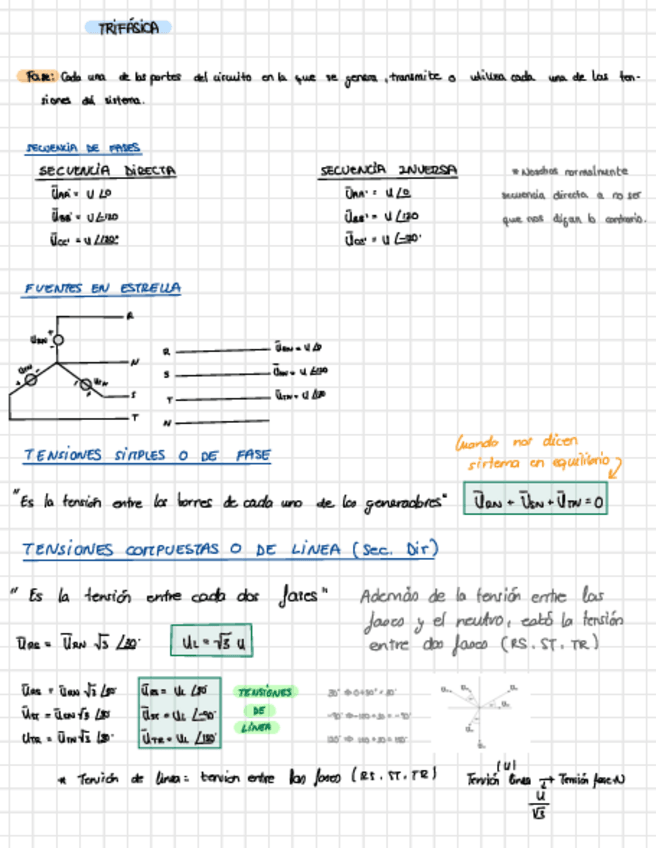 TRIFÁSICA
Fase: Cada una de las partes del circuito en la que se genera, transmite o utiliza cada una de las ten-
siones del sistema.
SECUENCIA DE FASES
SECUENCIA DIRECTA
SECUENCIA INVERSA
* Nosotros normalmente
secuencia directa a no ser
que nos digan lo contrario.
ŪAA' = U ∠0
ŪAA' = U ∠0
ŪBB' = U ∠-120
ŪBB' = U ∠120
ŪCC' = U ∠120°
ŪCC' = U ∠-120°
FUENTES EN ESTRELLA
R
N
S
T
R ŪRN = U ∠0
S
T
N
TENSIONES SIMPLES O DE FASE
Cuando nos dicen
sistema en equilibrio
"Es la tensión entre los bornes de cada uno de los generadores"
ŪRN + ŪSN + ŪTN = 0
TENSIONES COMPUESTAS O DE LÍNEA (Sec. Dir)
"Es la tensión entre cada dos fases"
Además de la tensión entre las
fases y el neutro, está la tensión
entre dos fases (RS, ST, TR)
ŪRS = ŪRN √3 ∠30°
UL = √3 U
ŪRS = ŪRN √3 ∠30°
ŪST = ŪSN √3 ∠30°
UTR = ŪTN √3 ∠30°
ŪRS = UL ∠30°
ŪST = UL ∠-90°
ŪTR = UL ∠150°
TENSIONES
DE
LÍNEA
* Tensión de línea: tensión entre las fases (RS, ST, TR)
(U)
Tensión línea → Tensión fase-N
U
√3